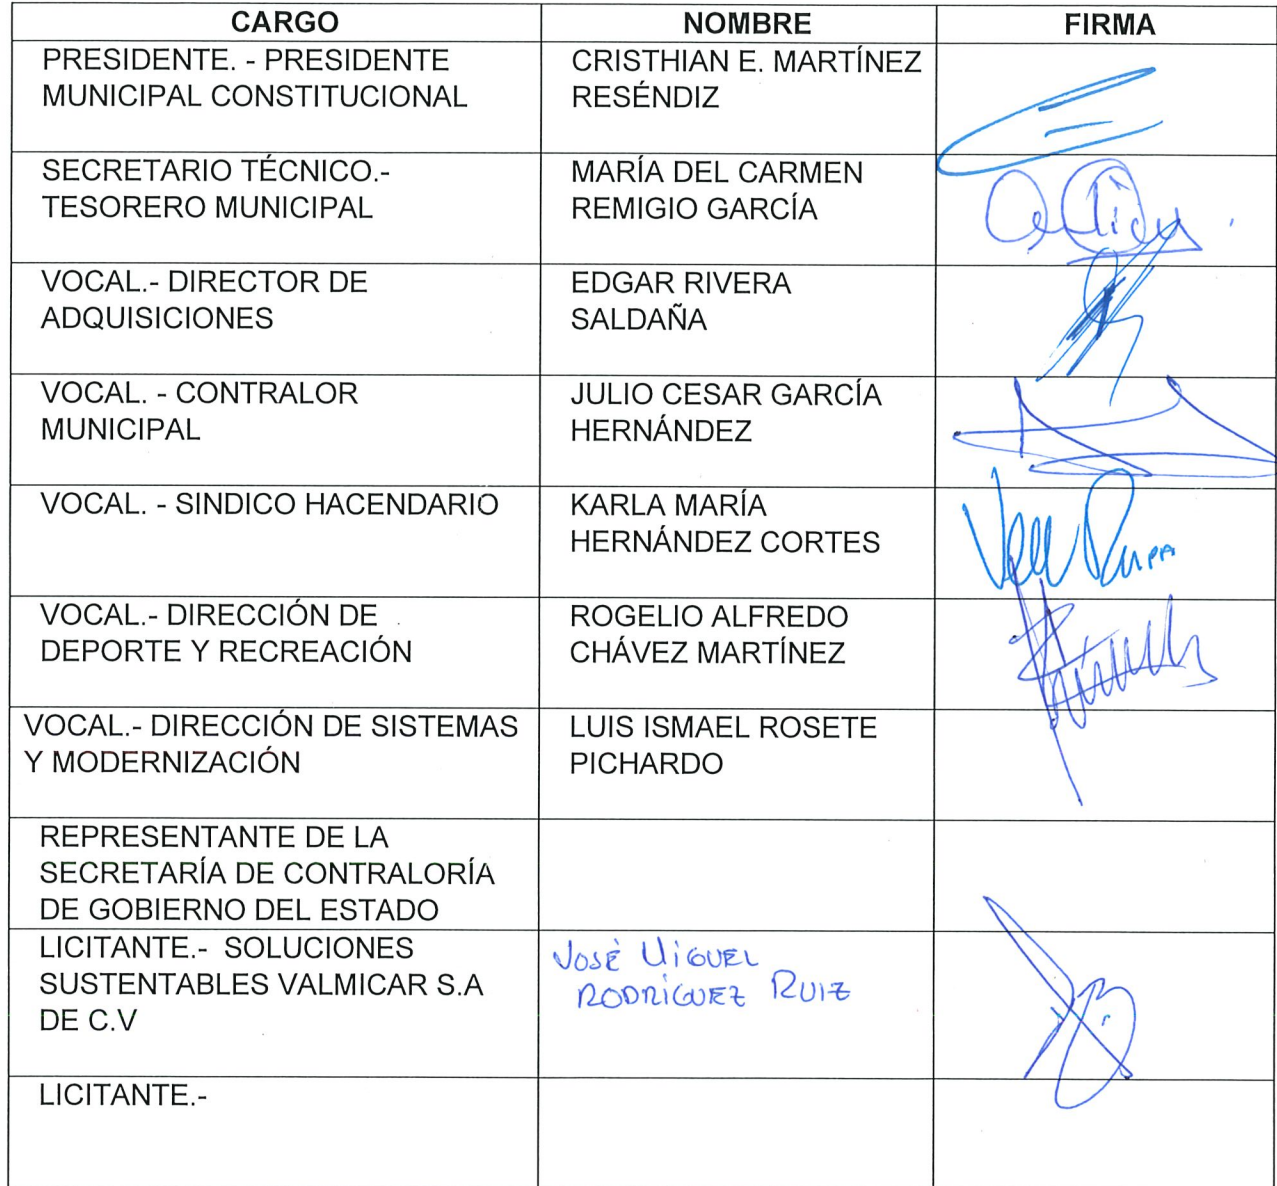 CARGO NOMBRE FIRMA
PRESIDENTE. - PRESIDENTE
MUNICIPAL CONSTITUCIONAL
CRISTHIAN E. MARTÍNEZ
RESÉNDIZ
SECRETARIO TÉCNICO.-
TESORERO MUNICIPAL
MARÍA DEL CARMEN
REMIGIO GARCÍA
VOCAL.- DIRECTOR DE
ADQUISICIONES
EDGAR RIVERA
SALDAÑA
VOCAL. - CONTRALOR
MUNICIPAL
JULIO CESAR GARCÍA
HERNÁNDEZ
VOCAL. - SINDICO HACENDARIO
KARLA MARÍA
HERNÁNDEZ CORTES
VOCAL.- DIRECCIÓN DE
DEPORTE Y RECREACIÓN
ROGELIO ALFREDO
CHÁVEZ MARTÍNEZ
VOCAL.- DIRECCIÓN DE SISTEMAS
Y MODERNIZACIÓN
LUIS ISMAEL ROSETE
PICHARDO
REPRESENTANTE DE LA
SECRETARÍA DE CONTRALORÍA
DE GOBIERNO DEL ESTADO
LICITANTE.- SOLUCIONES
SUSTENTABLES VALMICAR S.A
DE C.V
JOSÉ MIGUEL
RODRÍGUEZ RUIZ
LICITANTE.-